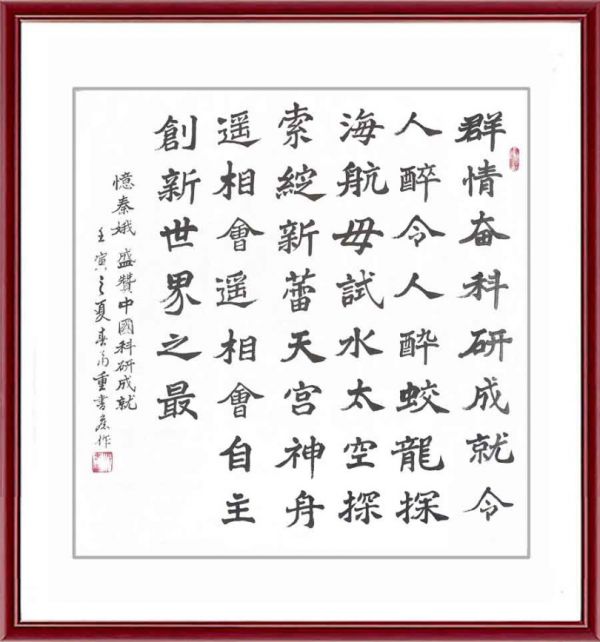 群情奋科研成就令
人醉令人醉蛟龍探
海航毋試水太空探
索綻新蕾天宫神舟
遥相會遥相會自主
創新世界之最
憶秦娥 盛贊中國科研成就
壬寅之夏春雨重書舊作